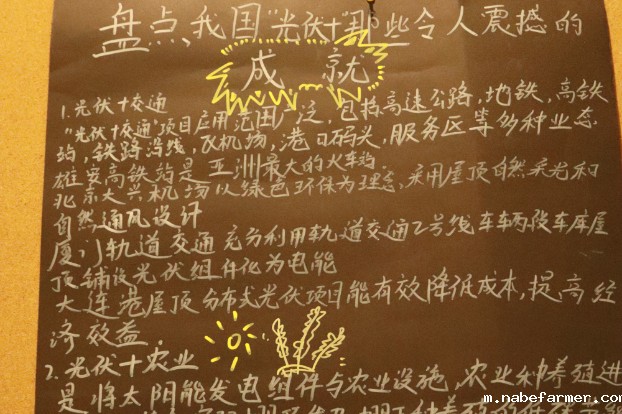 盘点我国"光伏+"那些令人震撼的
成就
1.光伏+交通
"光伏+交通"项目应用范围广泛,包括高速公路,地铁,高铁
站,铁路沿线,及机场,港口码头,服务区等多种业态.
雄安高铁站是亚洲最大的火车站.
北京大兴机场以绿色环保为理念,采用屋顶自然采光和
自然通风设计
厦门轨道交通充分利用轨道交通2号线车辆段车库屋
顶铺设光伏组件化为电能
大连港屋顶分布式光伏项目能有效降低成本,提高经
济效益.
2.光伏+农业
是将太阳能发电组件与农业设施,农业种养殖进
m.nabefarmer.com